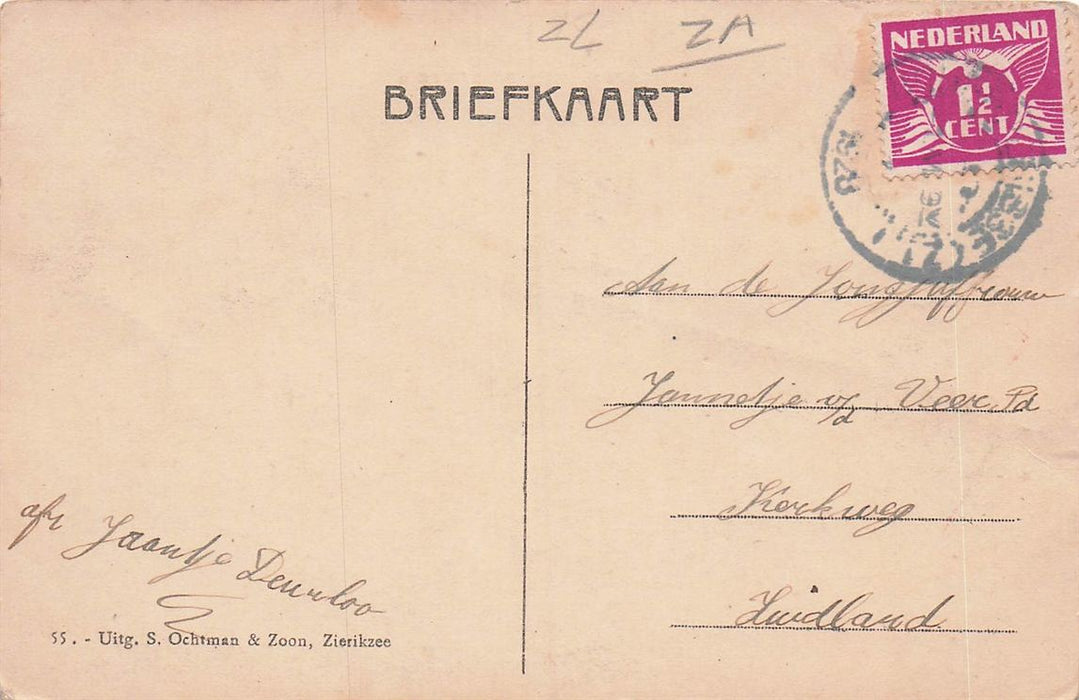 ZL ZA
BRIEFKAART
NEDERLAND
1½
CENT
Aan de Jongejuffrouw
Jannetje v/d Veer Pd
Kerkweg
Zuidland
afz Jaantje Deurloo
55. - Uitg. S. Ochtman & Zoon, Zierikzee